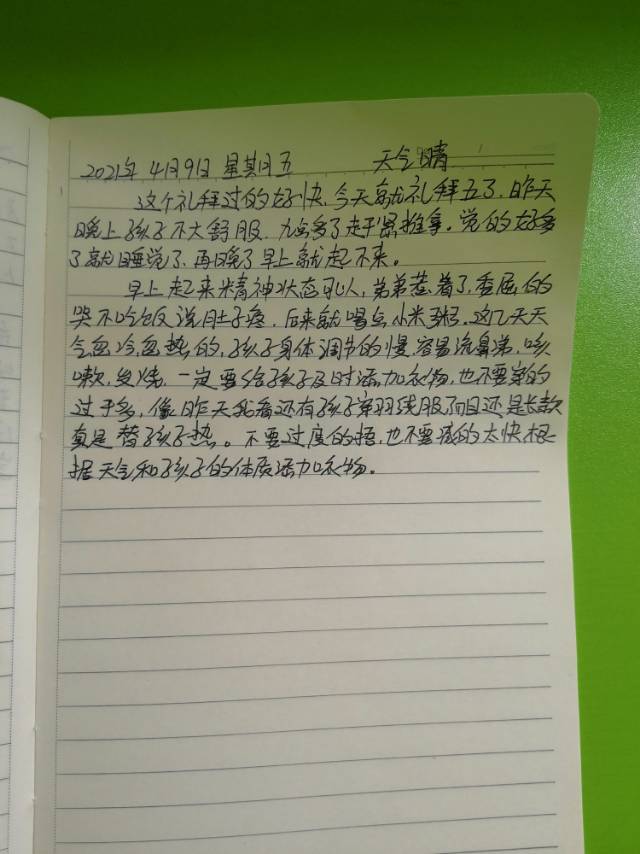 2021年4月9日 星期五 天气晴
这个礼拜过的好快,今天就礼拜五了,昨天
晚上孩子不大舒服,九点多了赶紧推拿。觉的好多
了就睡觉了,再晚了早上就起不来。
早上起来精神状态可以,弟弟惹着了,委屈的
哭不吃饭说肚子疼,后来就喝点小米粥,这几天天
气忽冷忽热的,孩子身体调节的慢,容易流鼻涕,咳
嗽,发烧,一定要给孩子及时添加衣物,也不要穿的
过于多,像昨天我看还有孩子穿羽绒服了而且还是长款
真是替孩子热。不要过度的捂,也不要减的太快根
据天气和孩子的体质添加衣物。